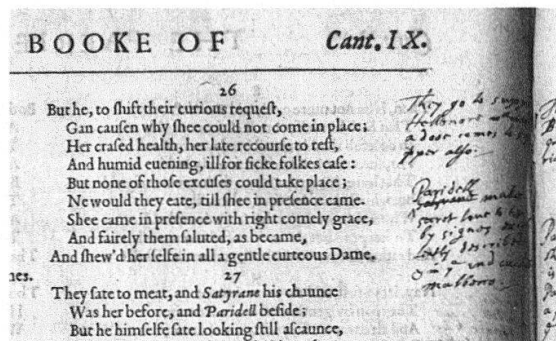 BOOKE OF Cant. IX.
26
But he, to ſhift their curious requeſt,
Gan cauſen why ſhee could not come in place;
Her craſed health, her late recourſe to reſt,
And humid euening, ill for ſicke folkes caſe:
But none of thoſe excuſes could take place;
Ne would they eate, till ſhee in preſence came.
Shee came in preſence with right comely grace,
And fairely them ſaluted, as became,
And ſhew'd her ſelfe in all a gentle curteous Dame.
nes.
27
They ſate to meat, and Satyrane his chaunce
Was her before, and Paridell beſide;
But he himſelfe ſate looking ſtill aſcaunce,
They go to
Hellenore
comes to
alſo.
Paridell
Satyrane make
ſecret loue to
by signes